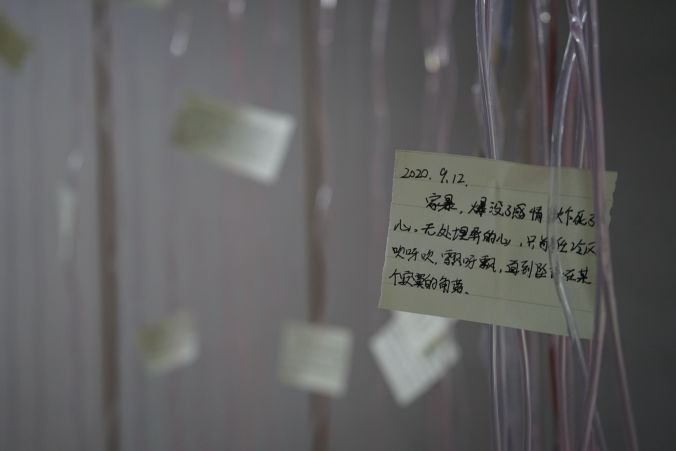 2020.9.12.
家暴，爆没了感情 炸死了
心，无处埋葬的心，只能任冷风
吹呀吹，飘呀飘，直到坠 在某
个寂寞的角落。